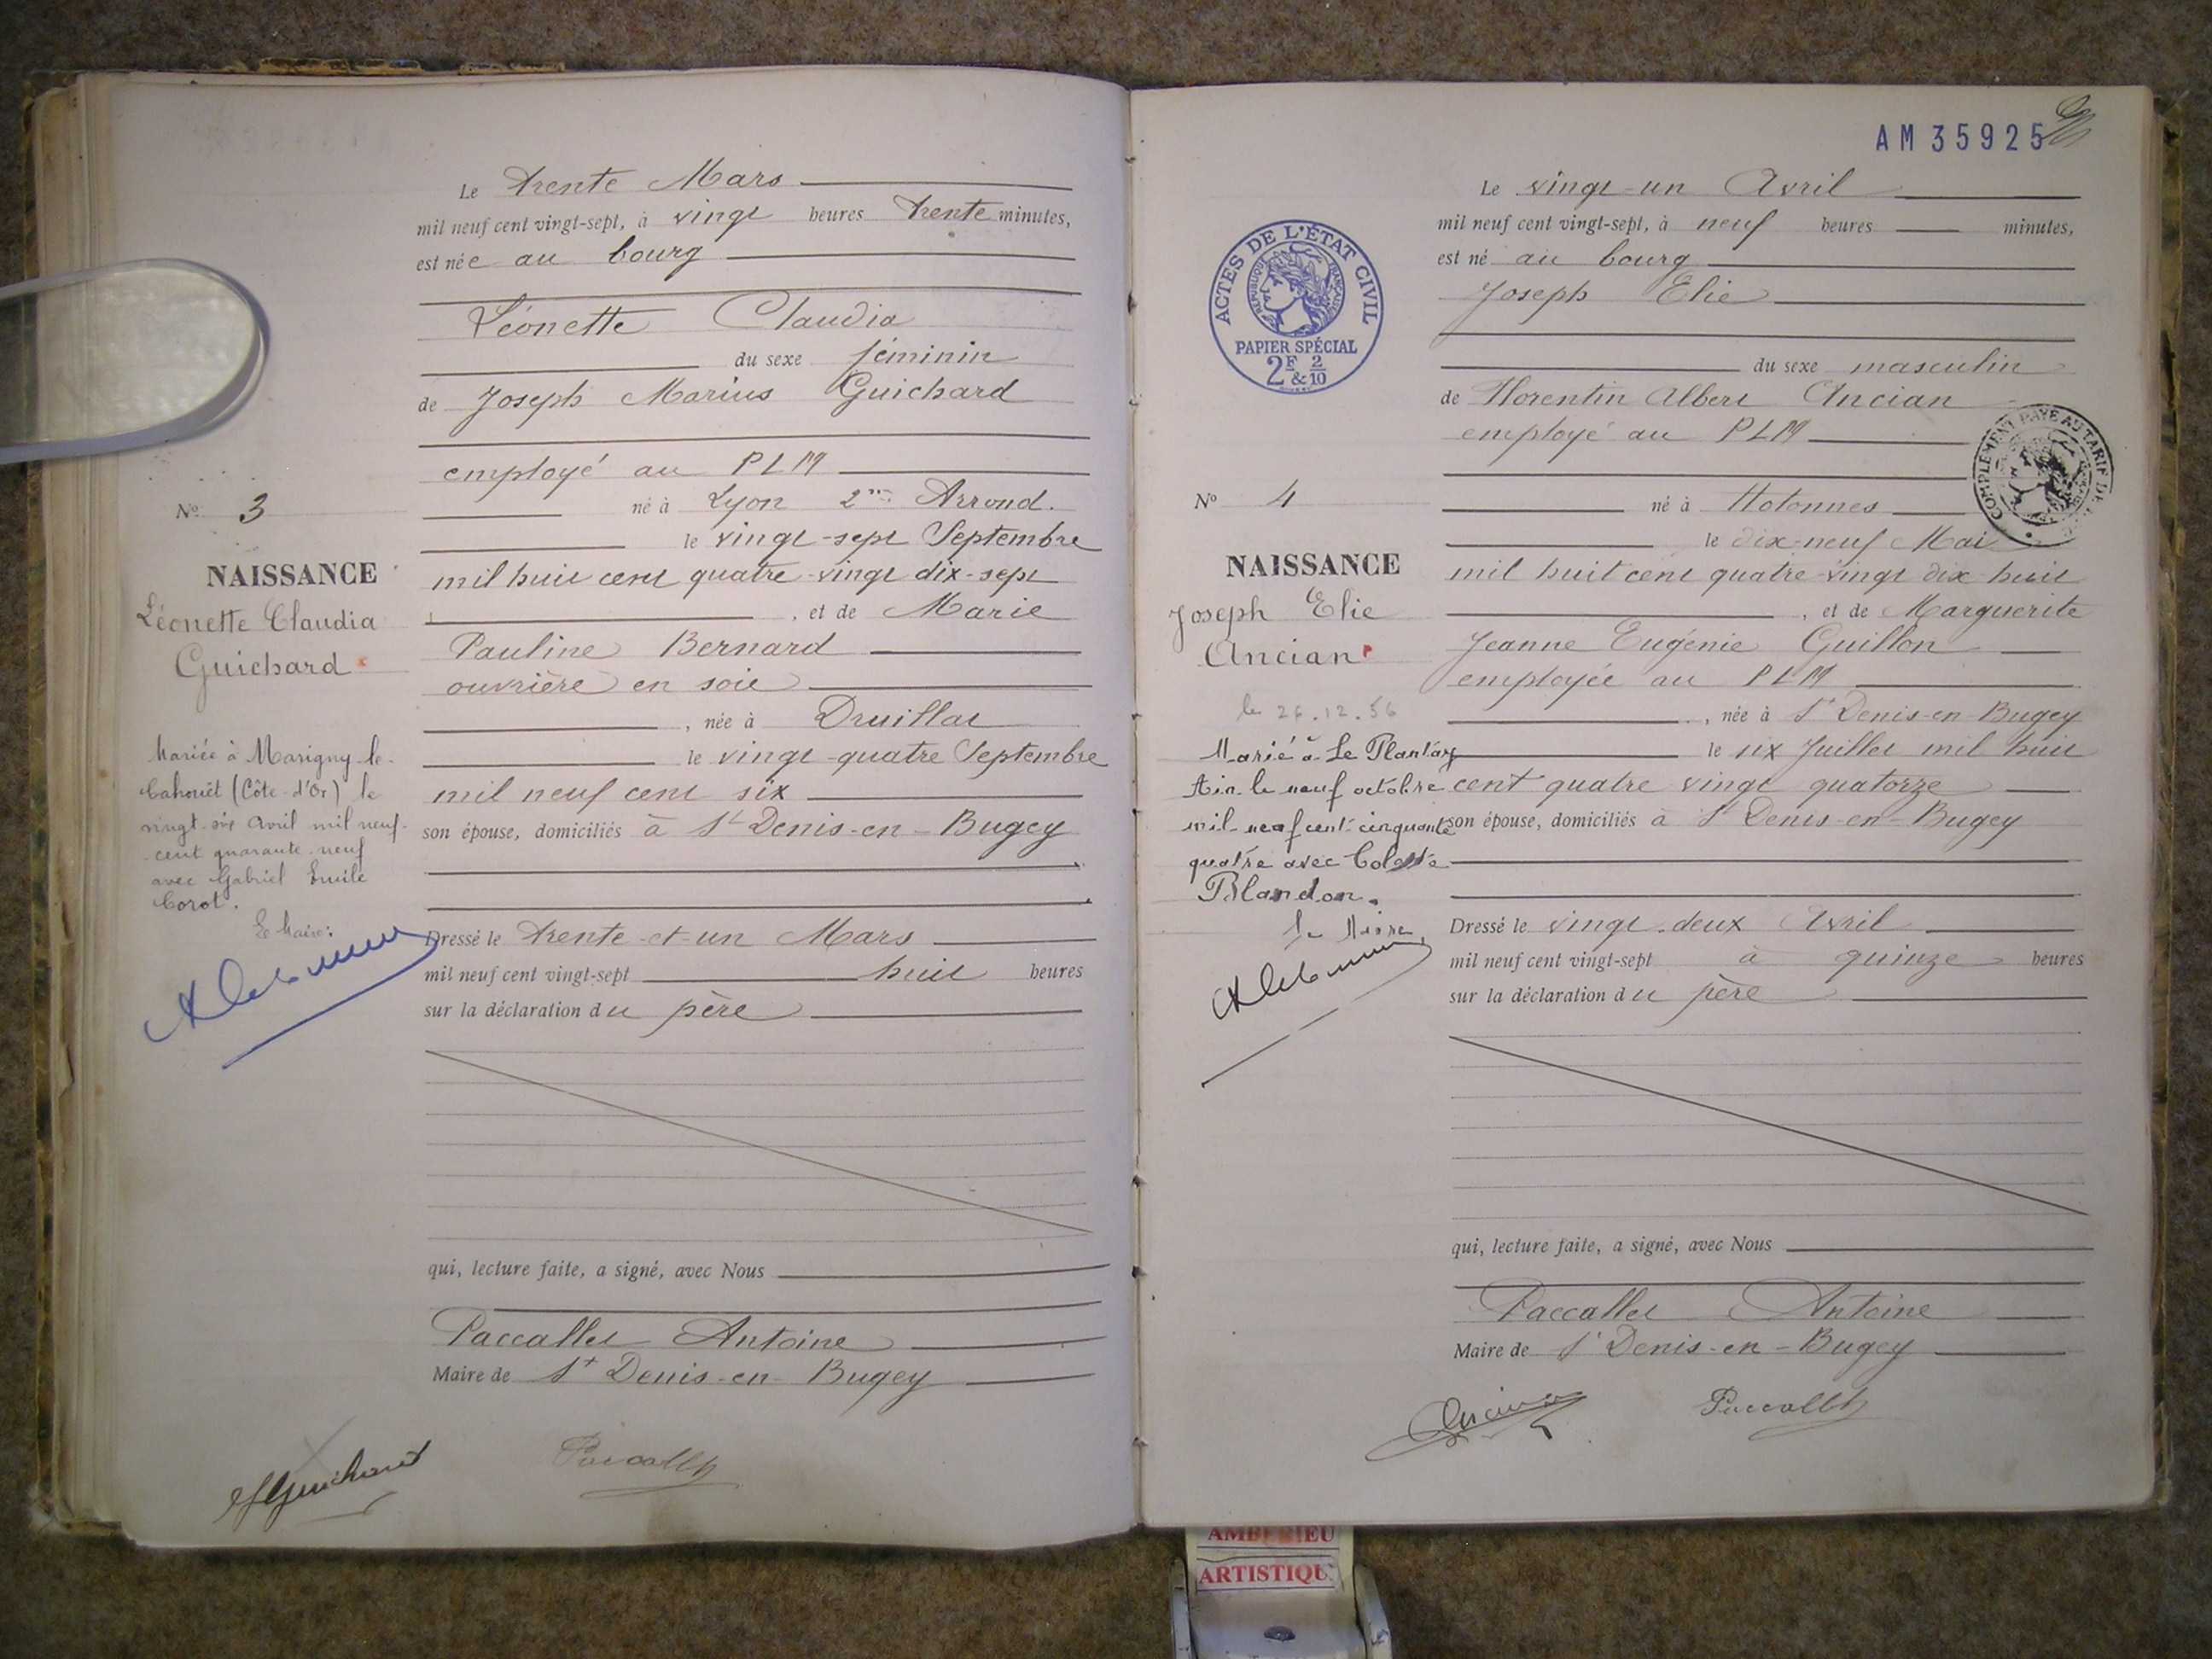 Le trente Mars
mil neuf cent vingt-sept, à vingt heures trente minutes,
est née au bourg
Léonette Claudia
du sexe féminin
de Joseph Marius Guichard
employé au PLM
né à Lyon 2me Arrond.
le vingt-sept Septembre
mil huit cent quatre-vingt dix-sept
, et de Marie
Pauline Bernard
ouvrière en soie
, née à Druillat
le vingt-quatre Septembre
mil neuf cent six
son épouse, domiciliés à St Denis-en-Bugey
Dressé le trente-et-un Mars
mil neuf cent vingt-sept huit heures
sur la déclaration du père
qui, lecture faite, a signé, avec Nous
Paccallet Antoine
Maire de St Denis-en-Bugey
Guichard
Paccallet
No 3
NAISSANCE
Léonette Claudia
Guichard
Mariée à Marigny-le-
Cahouët (Côte-d'Or) le
vingt-six avril mil neuf-
cent quarante-neuf
avec Gabriel Emile
Corot.
Le Maire:
AM 35925
ACTES DE L'ÉTAT CIVIL
RÉPUBLIQUE FRANÇAISE
PAPIER SPÉCIAL
2F & 2/10
Le vingt-un Avril
mil neuf cent vingt-sept, à neuf heures minutes,
est né au bourg
Joseph Elie
du sexe masculin
de Florentin Albert Ancian
employé au PLM
COMPLÉMENT PAYÉ AU TARIF DE
né à Hotonnes
le dix-neuf Mai
mil huit cent quatre-vingt dix huit
, et de Marguerite
Jeanne Eugénie Guillon
employée au PLM
, née à St Denis-en-Bugey
le six Juillet mil huit
cent quatre vingt quatorze
son épouse, domiciliés à St Denis-en-Bugey
Dressé le vingt-deux Avril
mil neuf cent vingt-sept à quinze heures
sur la déclaration du père
qui, lecture faite, a signé, avec Nous
Paccallet Antoine
Maire de St Denis-en-Bugey
Ancian
Paccallet
No 4
NAISSANCE
Joseph Elie
Ancian
le 26.12.56
Marié à Le Plantay
Ain le neuf octobre
mil neuf cent cinquante
quatre avec Colette
Blandon.
Le Maire,
AMBERIEU
ARTISTIQU